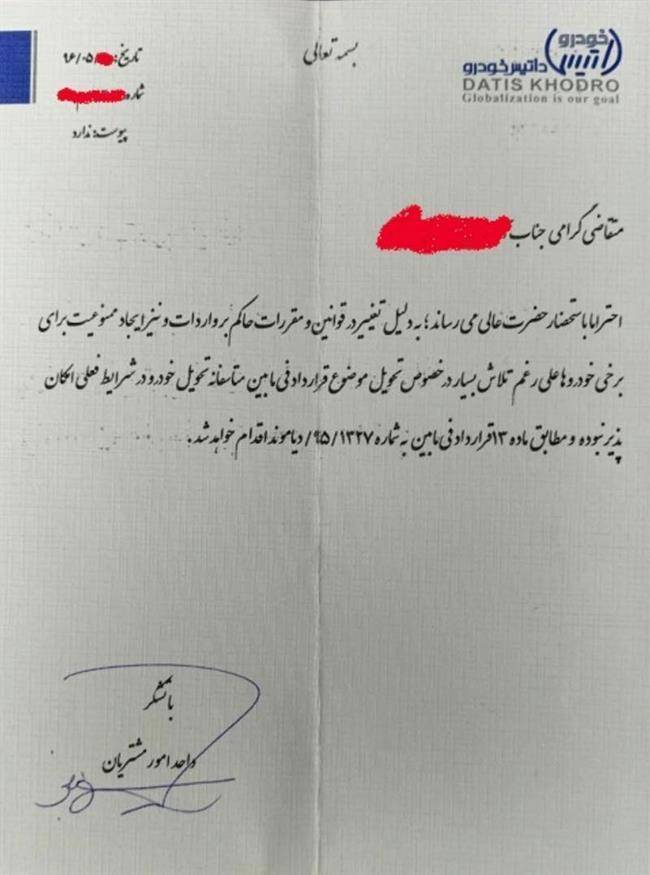 بسمه تعالی
خودرو
آتیس
داتیس خودرو
DATIS KHODRO
Globalization is our goal
تاریخ: ۹۶/۰۵/
شماره:
پیوست: ندارد
متقاضی گرامی جناب
احتراما باستحضار حضرت عالی می رساند؛ به دلیل تغییر در قوانین و مقررات حاکم بر واردات و نیز ایجاد ممنوعیت برای
برخی خودروها علی رغم تلاش بسیار در خصوص تحویل موضوع قرارداد فی مابین متاسفانه تحویل خودرو در شرایط فعلی امکان
پذیر نبوده و مطابق ماده ۱۳ قرارداد فی مابین به شماره ۹۵/۱۳۲۷/دیاموند اقدام خواهد شد.
باتشکر
واحد امور مشتریان